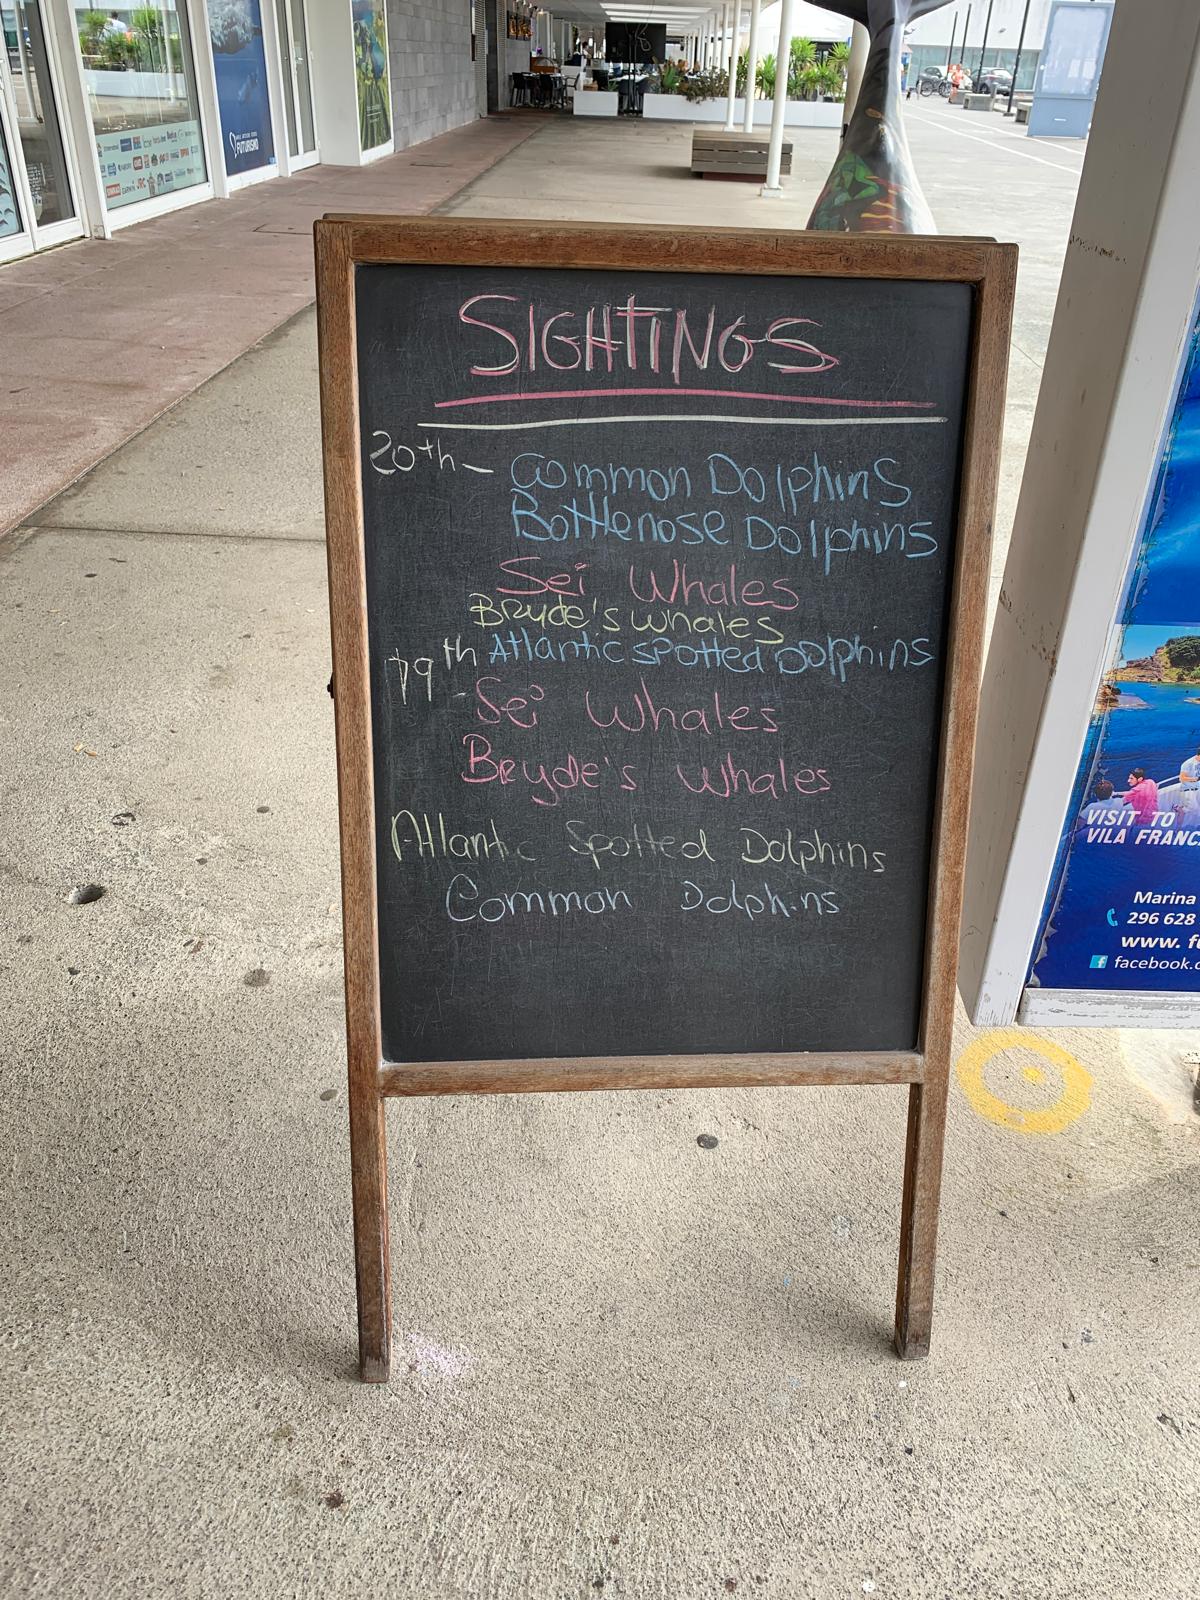 FUTURISMO
SIGHTINGS
20th - Common Dolphins
Bottlenose Dolphins
Sei Whales
Bryde's whales
19th Atlantic spotted Dolphins
- Sei Whales
Bryde's whales
Atlantic Spotted Dolphins
Common Dolphins
VISIT TO
VILA FRANC
Marina
296 628
www. fu
facebook.c